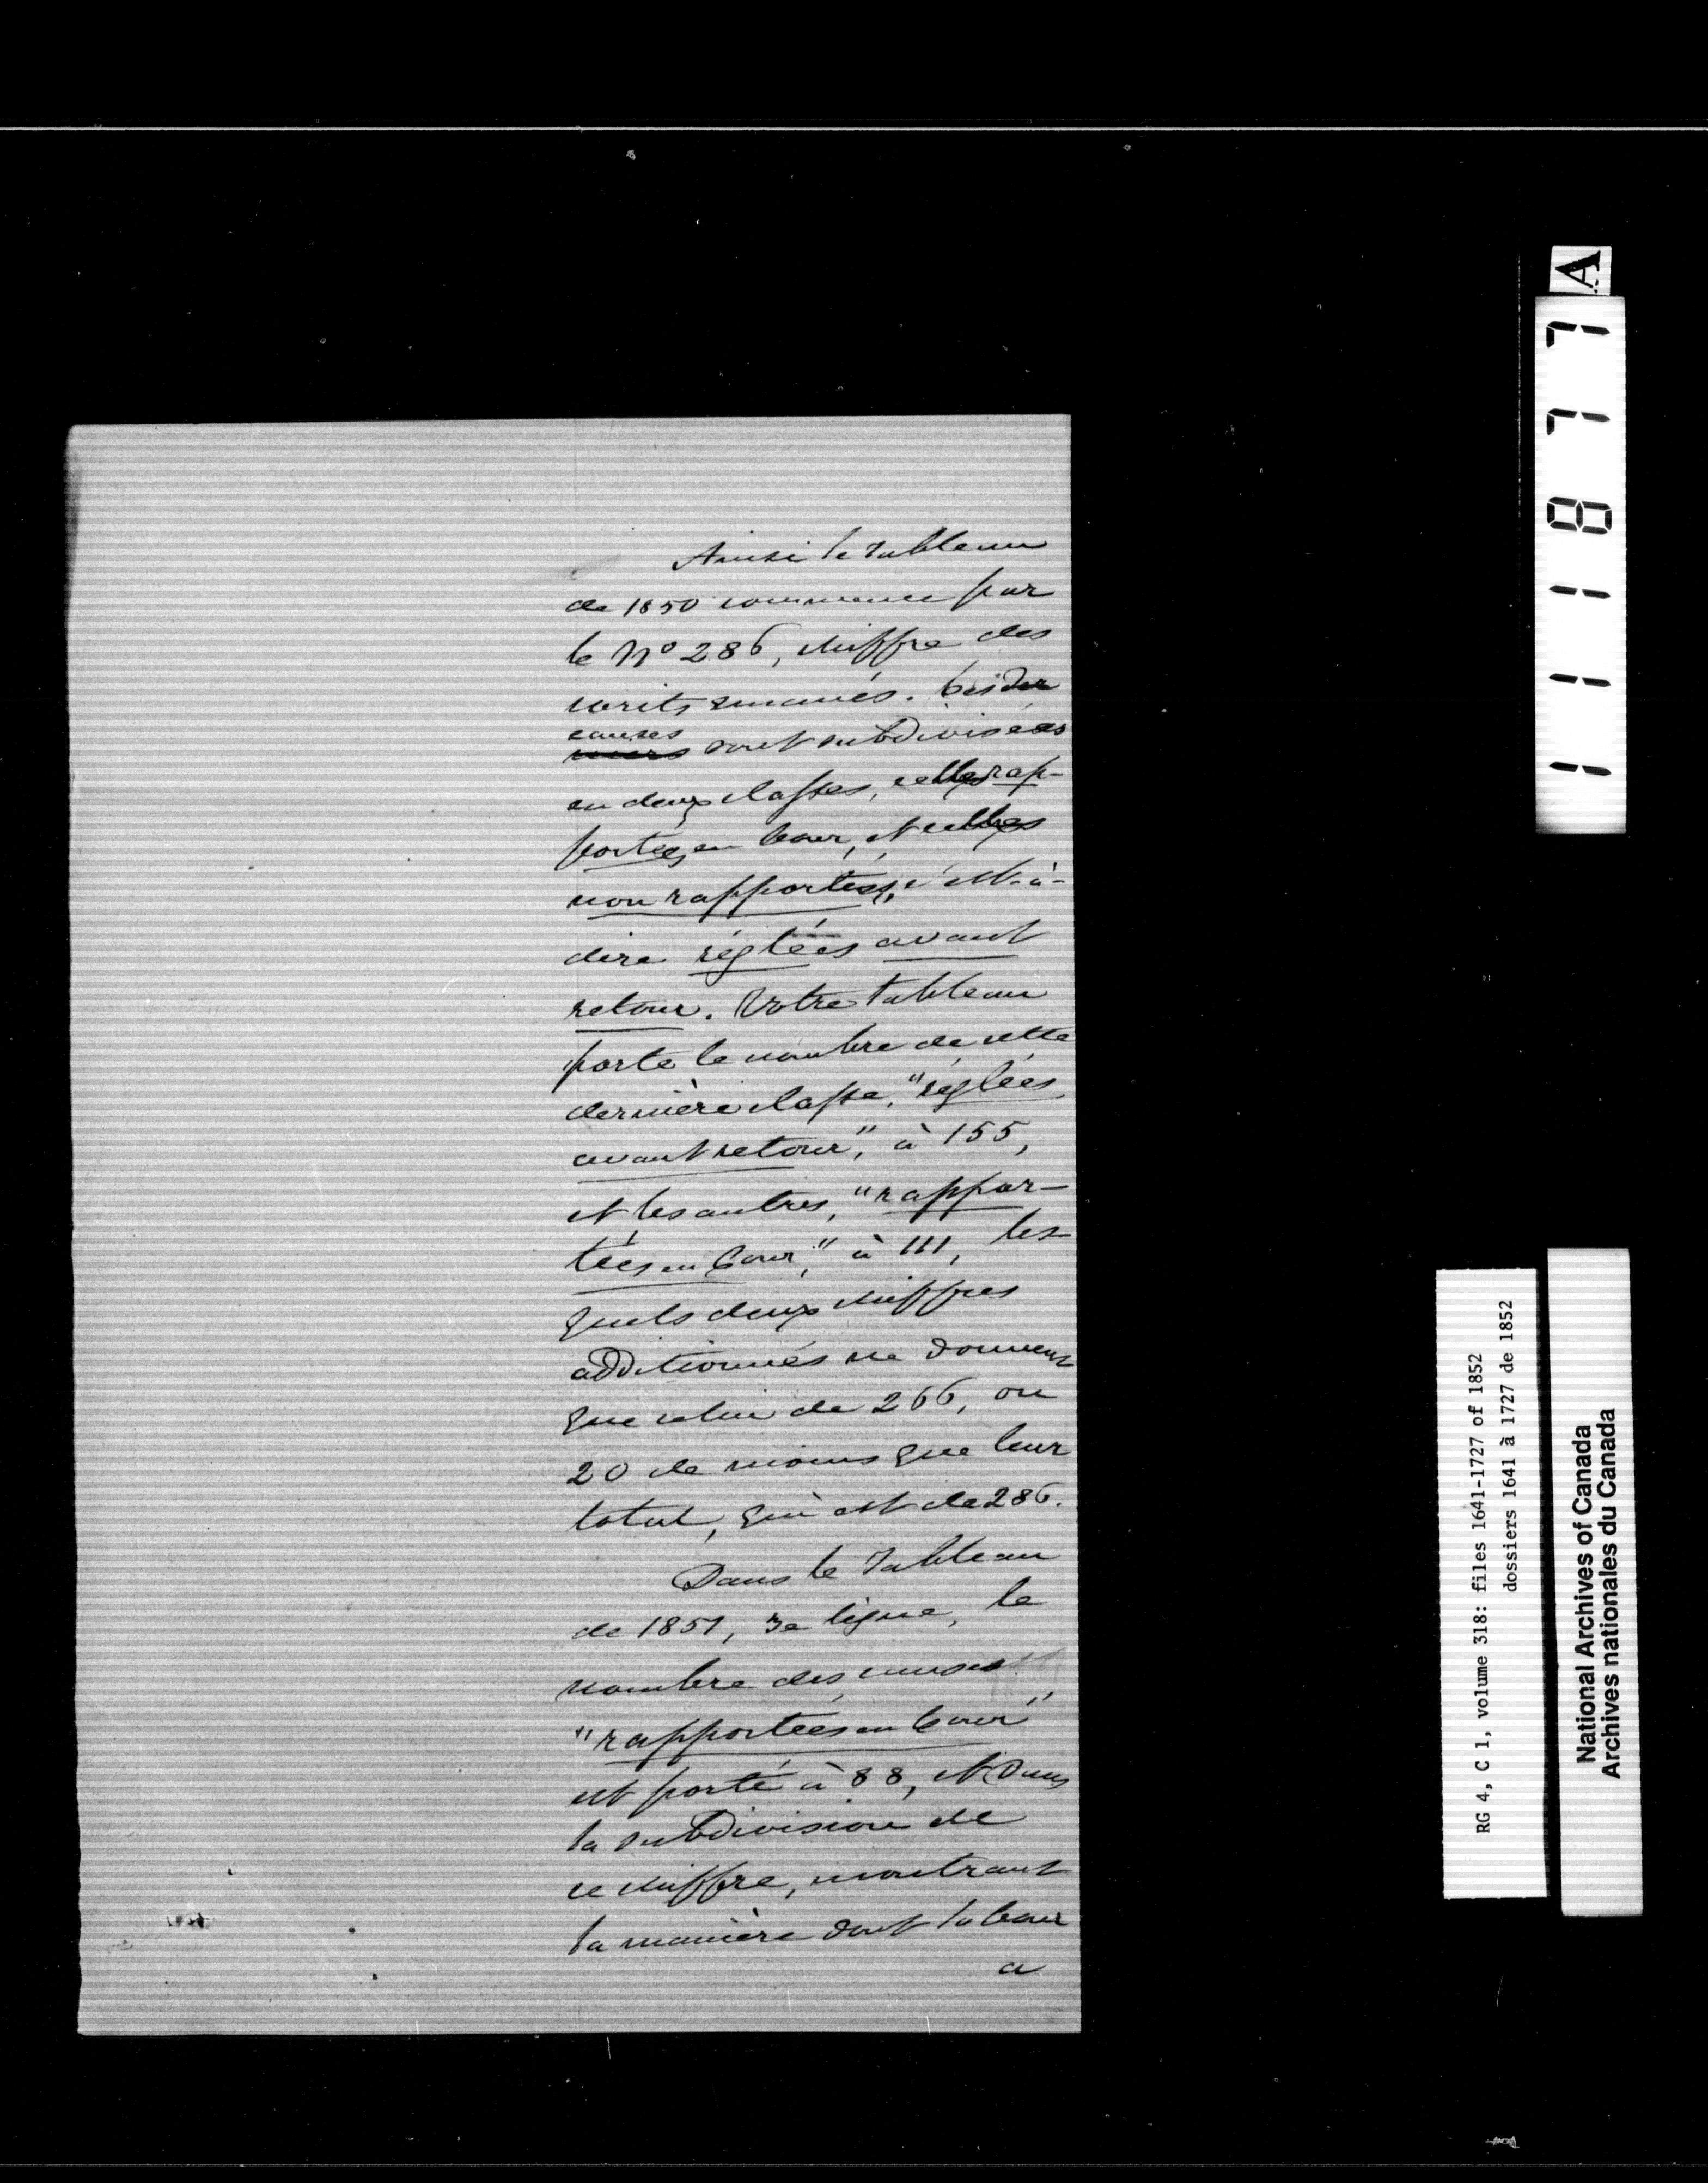 Ainsi le Tableau
de 1850 commence par
le No 286, chiffre des
writs emanés. Ces
causes
sont subdivisées
en deux classes, celles rap-
portées en Cour, et celles
non rapportées, c'est-à-
dire réglées avant
retour. Votre tableau
porte le nombre de cette
dernière classe, "réglées
avant retour", à 155,
et les autres, "rappor-
tées en Cour," à 111, les-
quels deux chiffres
additionnés ne donnent
que celui de 266, ou
20 de moins que leur
total, qui est de 286.
Dans le Tableau
de 1851, 3e ligne, le
nombre des causes
"rapportées en Cour"
est porté à 88, et dans
la subdivision de
ce chiffre, montrant
la manière dont la Cour
a
A
111877
RG 4, C 1, volume 318: files 1641-1727 of 1852
dossiers 1641 à 1727 de 1852
National Archives of Canada
Archives nationales du Canada